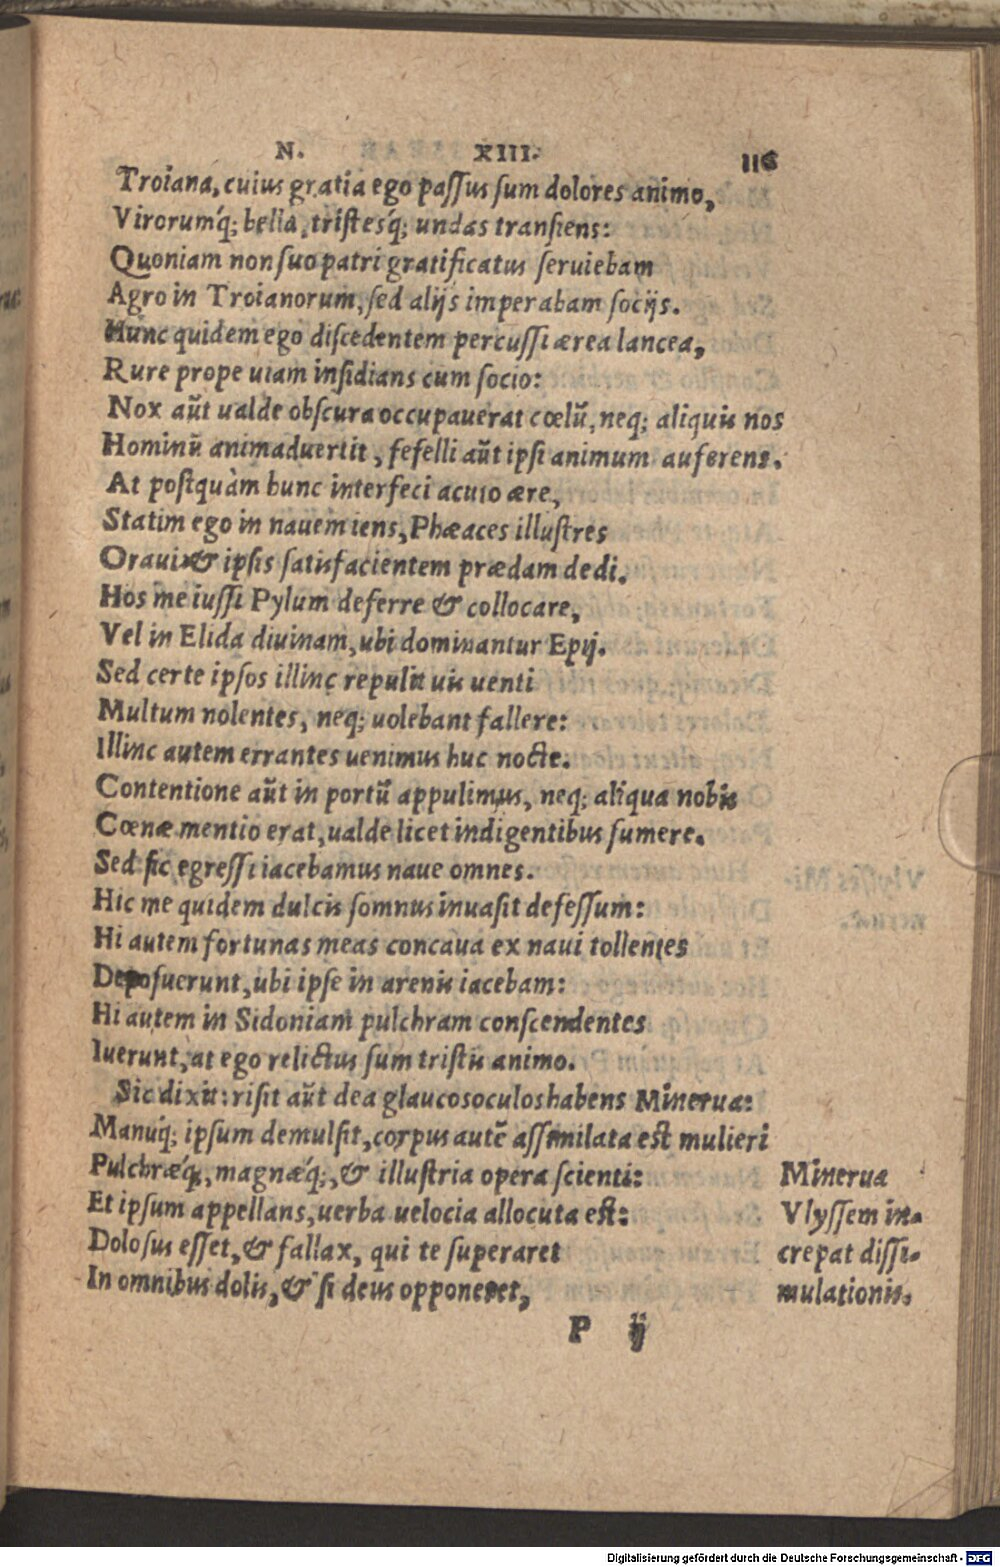 N. XIII. 116
Troiana, cuius gratia ego paſſus ſum dolores animo,
Virorumq́; bella, triſtesq́; undas tranſiens:
Quoniam non ſuo patri gratificatus ſeruiebam
Agro in Troianorum, ſed alijs imperabam ſocijs.
Hunc quidem ego diſcedentem percuſſi ærea lancea,
Rure prope uiam inſidians cum ſocio:
Nox aūt ualde obſcura occupauerat cœlū, neq; aliquis nos
Hominū animaduertit, fefelli aūt ipſi animum auferens.
At poſtquàm hunc interfeci acuto ære,
Statim ego in nauem iens, Phæaces illuſtres
Oraui, & ipſis ſatisfacientem prædam dedi.
Hos me iuſſi Pylum deferre & collocare,
Vel in Elida diuinam, ubi dominantur Epij.
Sed certe ipſos illinc repulit uis uenti
Multum nolentes, neq; uolebant fallere:
Illinc autem errantes uenimus huc nocte.
Contentione aūt in portū appulimus, neq; aliqua nobis
Cœnæ mentio erat, ualde licet indigentibus ſumere.
Sed ſic egreſſi iacebamus naue omnes.
Hic me quidem dulcis ſomnus inuaſit defeſſum:
Hi autem fortunas meas concaua ex naui tollentes
Depoſuerunt, ubi ipſe in arenis iacebam:
Hi autem in Sidoniam pulchram conſcendentes
Iuerunt, at ego relictus ſum triſtis animo.
Sic dixit: riſit aūt dea glaucos oculos habens Minerua:
Manuq́; ipſum demulſit, corpus autē aſſimilata eſt mulieri
Pulchræq́;, magnæq́;, & illuſtria opera ſcienti:
Et ipſum appellans, uerba uelocia allocuta eſt:
Doloſus eſſet, & fallax, qui te ſuperaret
In omnibus dolis, & ſi deus opponeret,
Minerua
Vlyſſem in-
crepat diſſi-
mulationis.
P ij
Digitalisierung gefördert durch die Deutsche Forschungsgemeinschaft - DFG